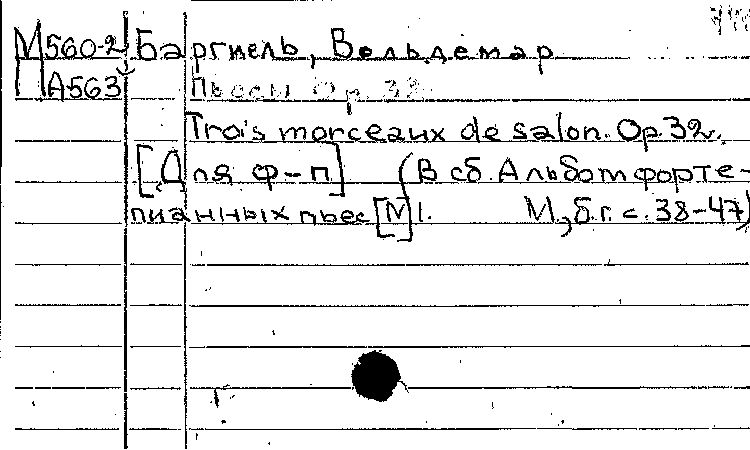 М560-2 Баргиель, Вольдемар
А563 Пьесы Ор. 32
Trois morceaux de salon. Op. 32.
[Для ф-п] (В сб. Альбом форте-
пианных пьес [М] 1. М, б.г. с. 38-47)